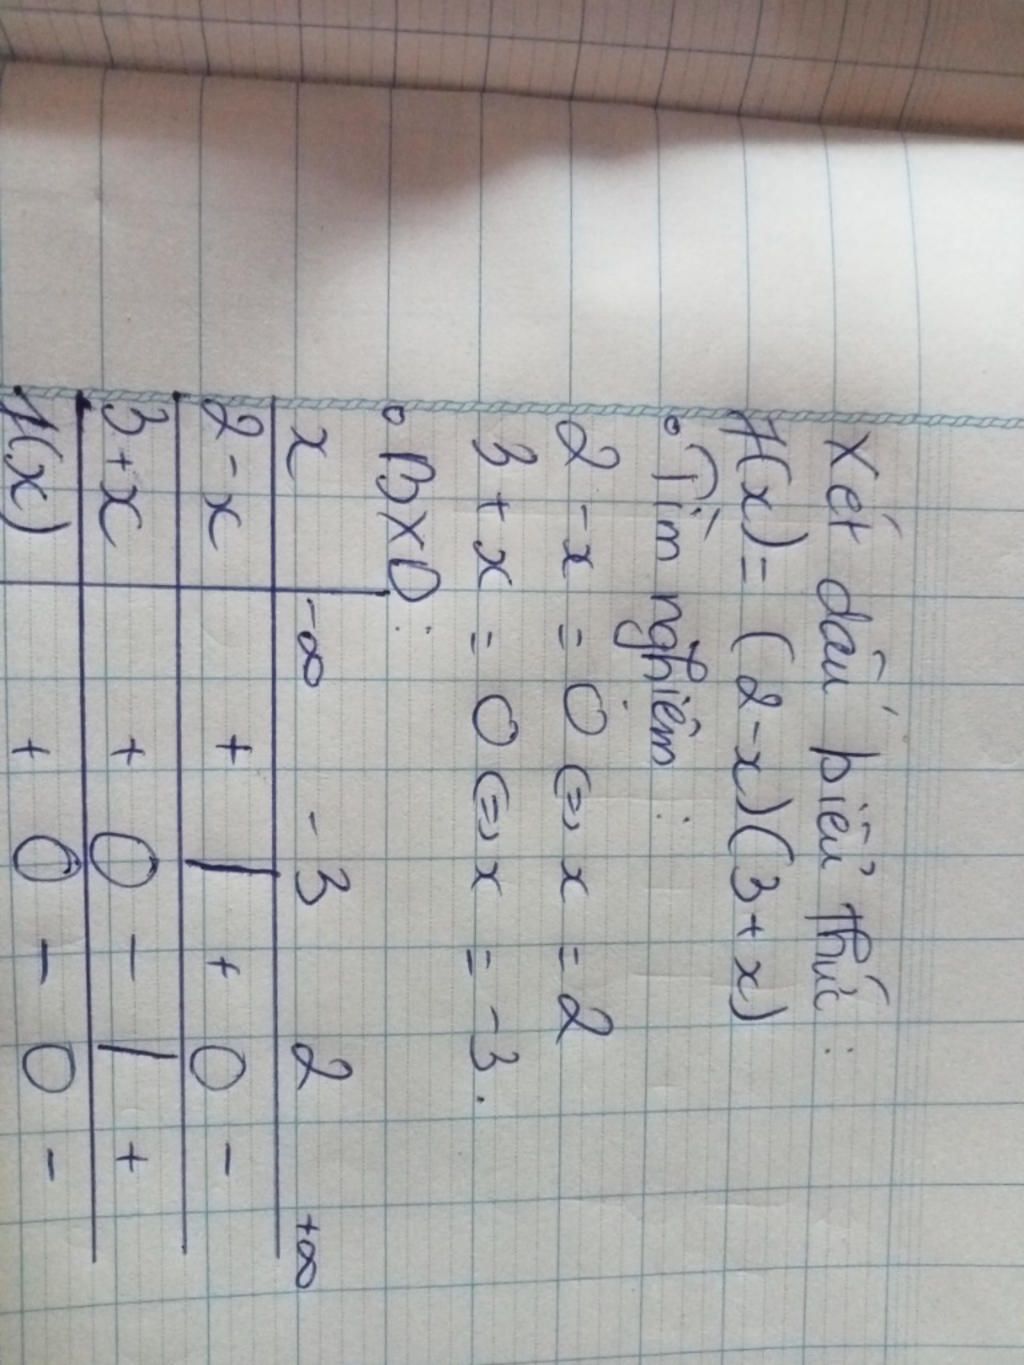 Xét dấu biểu thức :
f(x) = (2-x)(3+x)
∘ Tìm nghiệm :
2 - x = 0 (=) x = 2
3 + x = 0 (=) x = -3.
∘ BXD :
x -∞ -3 2 +∞
2-x + | + 0 -
3+x + 0 - | +
f(x) + 0 - 0 -